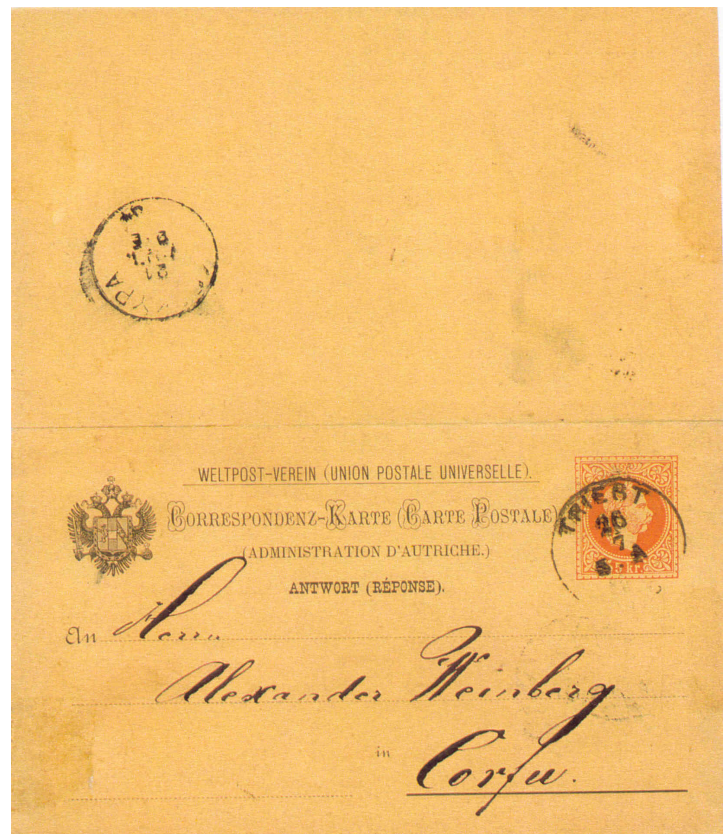 WELTPOST-VEREIN (UNION POSTALE UNIVERSELLE).
CORRESPONDENZ-KARTE (CARTE POSTALE)
(ADMINISTRATION D'AUTRICHE.)
ANTWORT (RÉPONSE).
TRIEST
26
5 Kr.
An Herrn
Alexander Weinberg
in
Corfu.